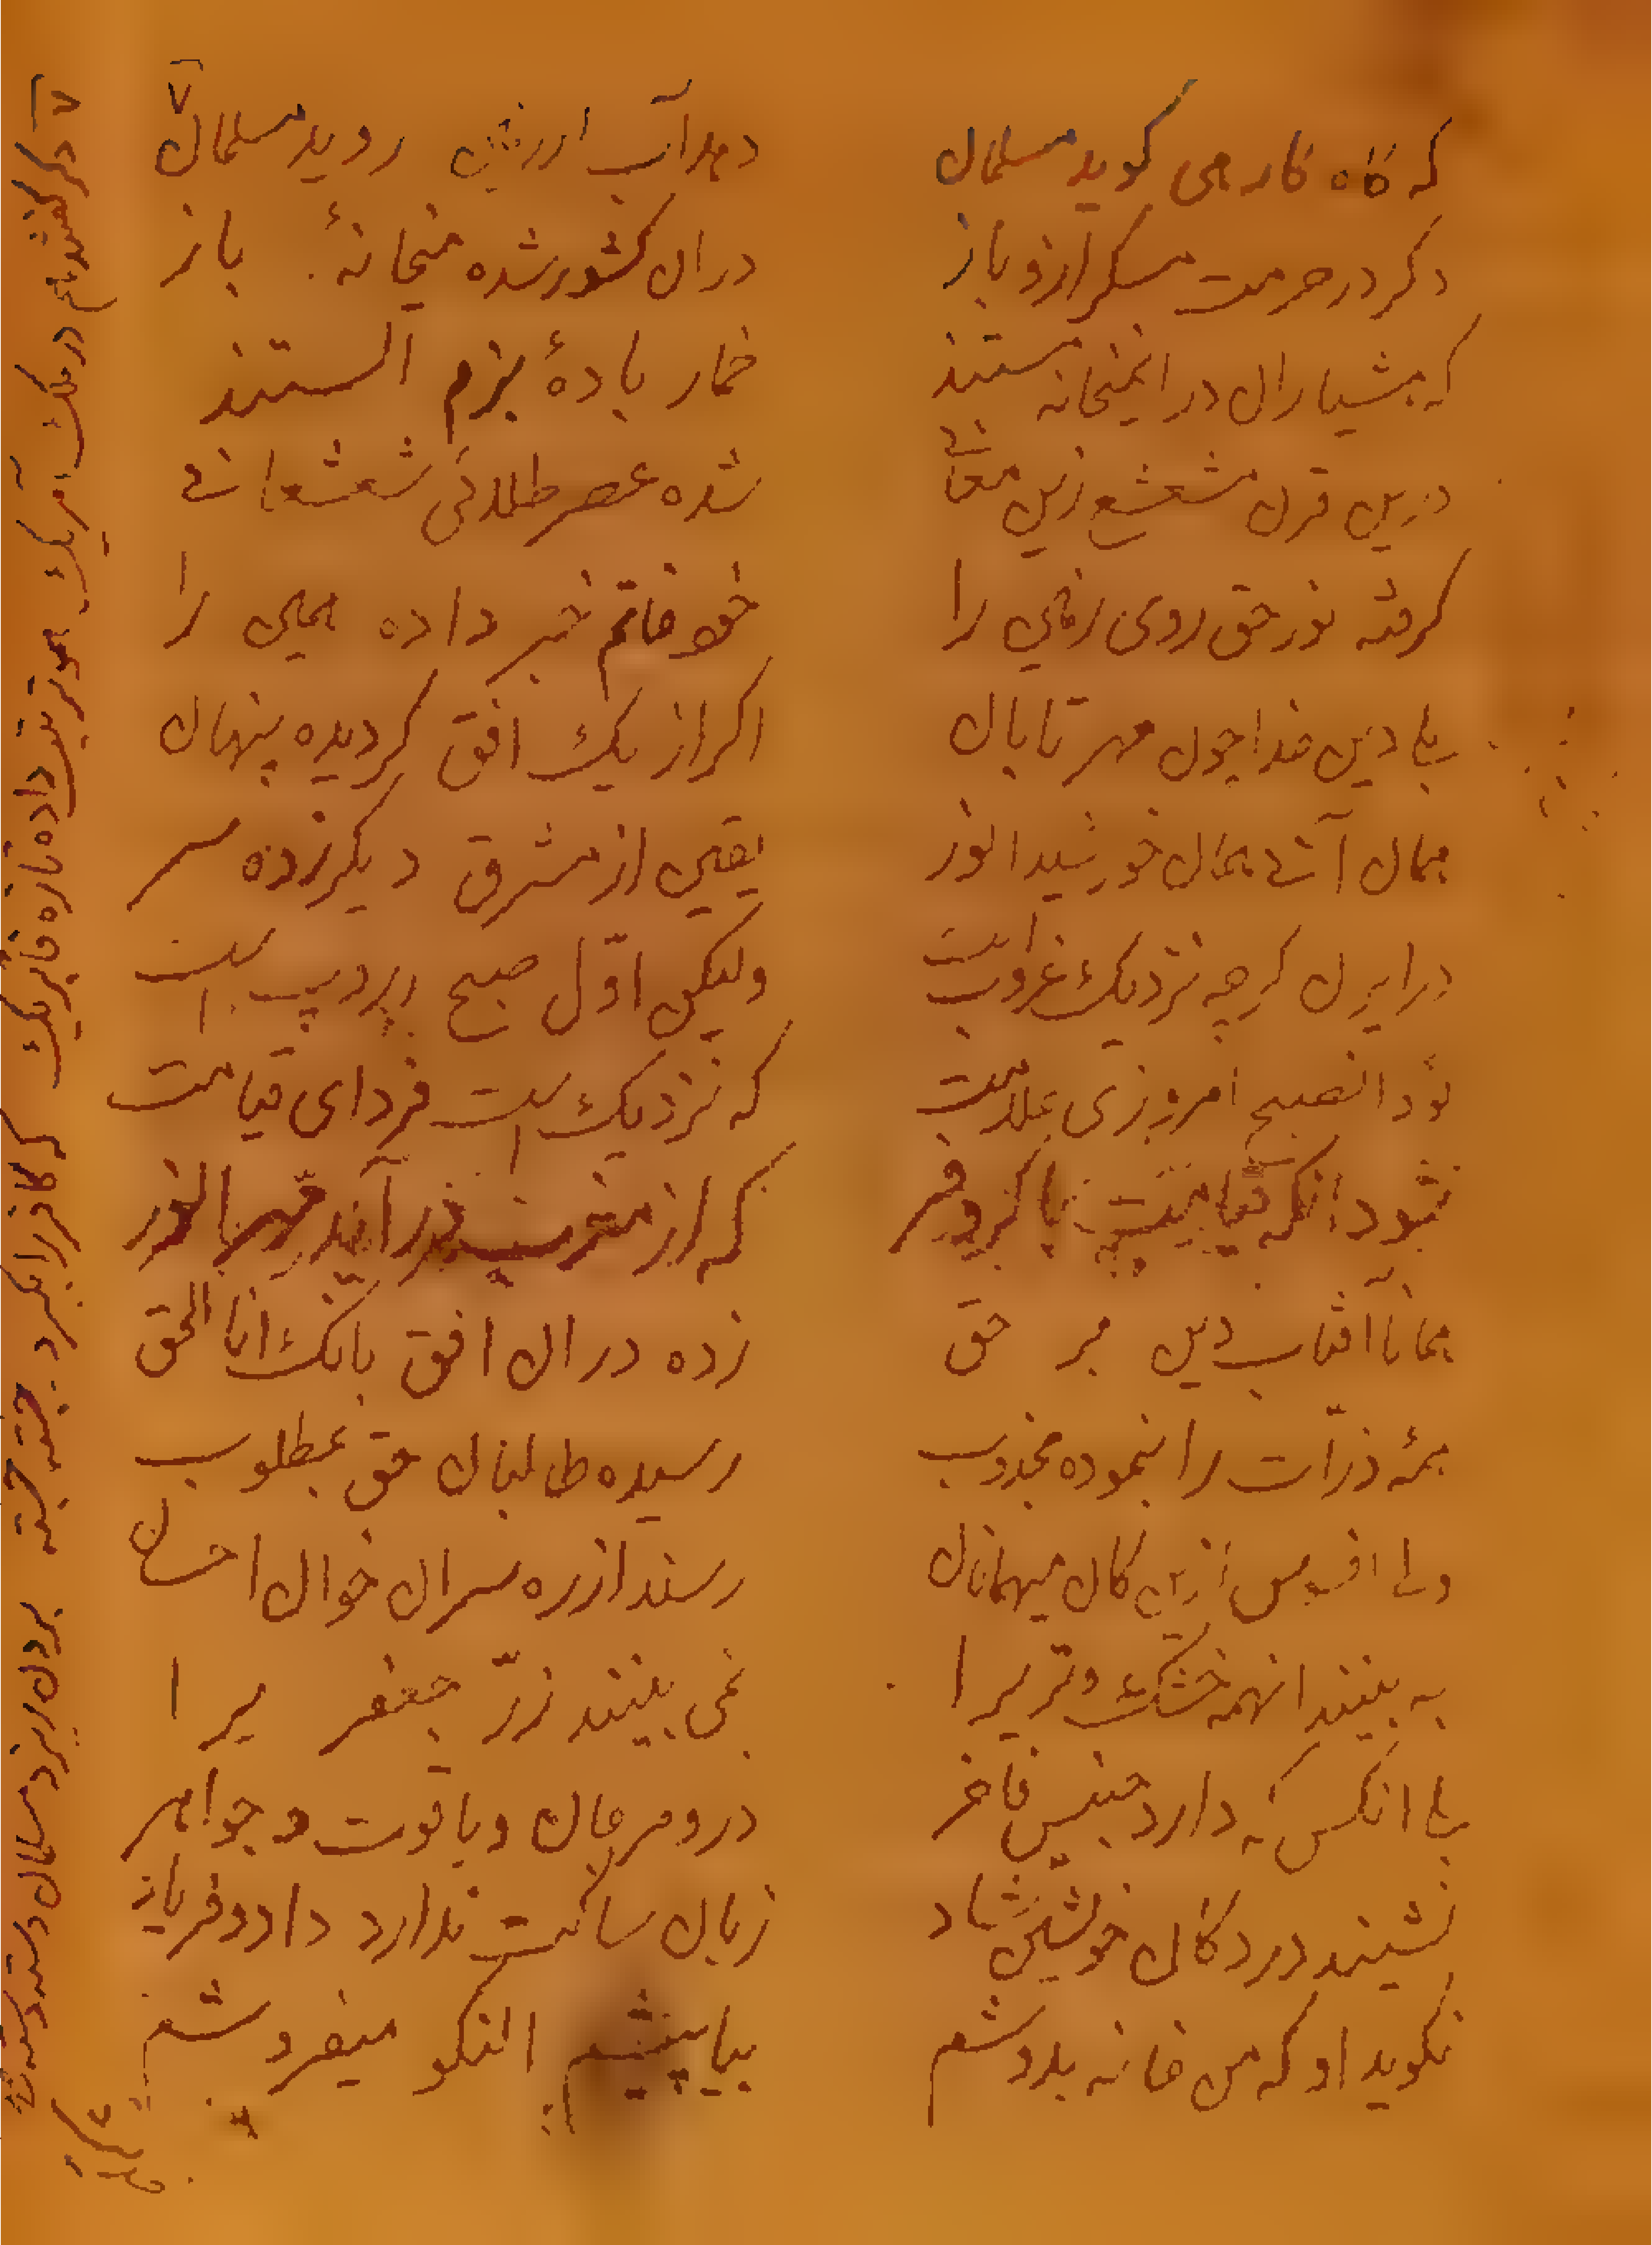 که گاه کار می گوید مسلمان
دهد آب ارزنش روید مسلمان
دگر در حرمت مسکر ازو باز
در ان کشور شده میخانهٔ باز
که هشیاران در اینمیخانه مستند
خمار بادهٔ بزم الستند
درین قرن مشعشع زین معانی
شده عصر طلائی شعشعانی
گرفته نور حق روی زمین را
خود خاتم خبر داده همین را
بلی دین خدا چون مهر تابان
اگر از یک افق گردیده پنهان
همان آنی همان خورشید انور
یقین از مشرق دیگر زده سر
در ایران گرچه نزدیک غروبست
ولیکن اوّل صبح اروپ است
بود انصبح امروزی علامت
که نزدیک است فردای قیامت
شود انگه قیامت با کر و فر
که از مغرب در آید مهر انور
همانا آفتاب دین بر حق
زده در ان افق بانگ انا الحق
همه ذرّات را بنموده مجذوب
رسیده طالبان حق بمطلوب
ولی افسوس ازین کان میهمانان
رسند از ره سران خوان احسان
به بینند انهمه خشک و تریرا
نمی بینند زرّ جعفریرا
بلی انکس که دارد جنس فاخر
در و مرجان و یاقوت و جواهر
نشیند در دکان خویشتن شاد
زبان ساکت ندارد داد و فریاد
نگوید او که من خانه بدوشم
بیا پیشم النگو میفروشم
دگر گفتند در ملک آمریک
هوتر یخی داده تازه فابریک
که کافر را بگیرد جسته جسته
بردن ریزد مسلمان دسته دسته